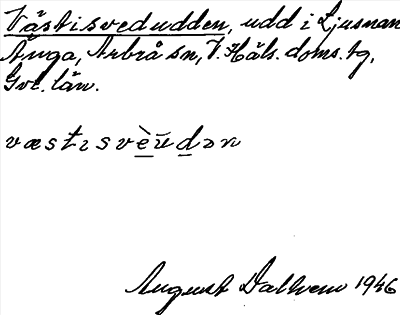 Västisvedudden, udd i Ljusnan
Ånga, Arbrå sn, V. Häls. doms. tg,
Gvl. län.
væstısvèʉ̄dən
August Dalhem 1946